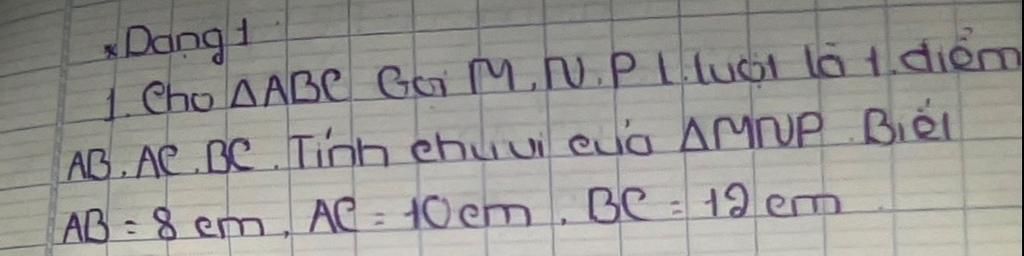 * Dạng 1
1. Cho ΔABC Gọi M, N, P l. lượt là t. điểm
AB, AC, BC. Tính chu vi của ΔMNP. Biết
AB = 8 cm, AC = 10 cm, BC = 12 cm